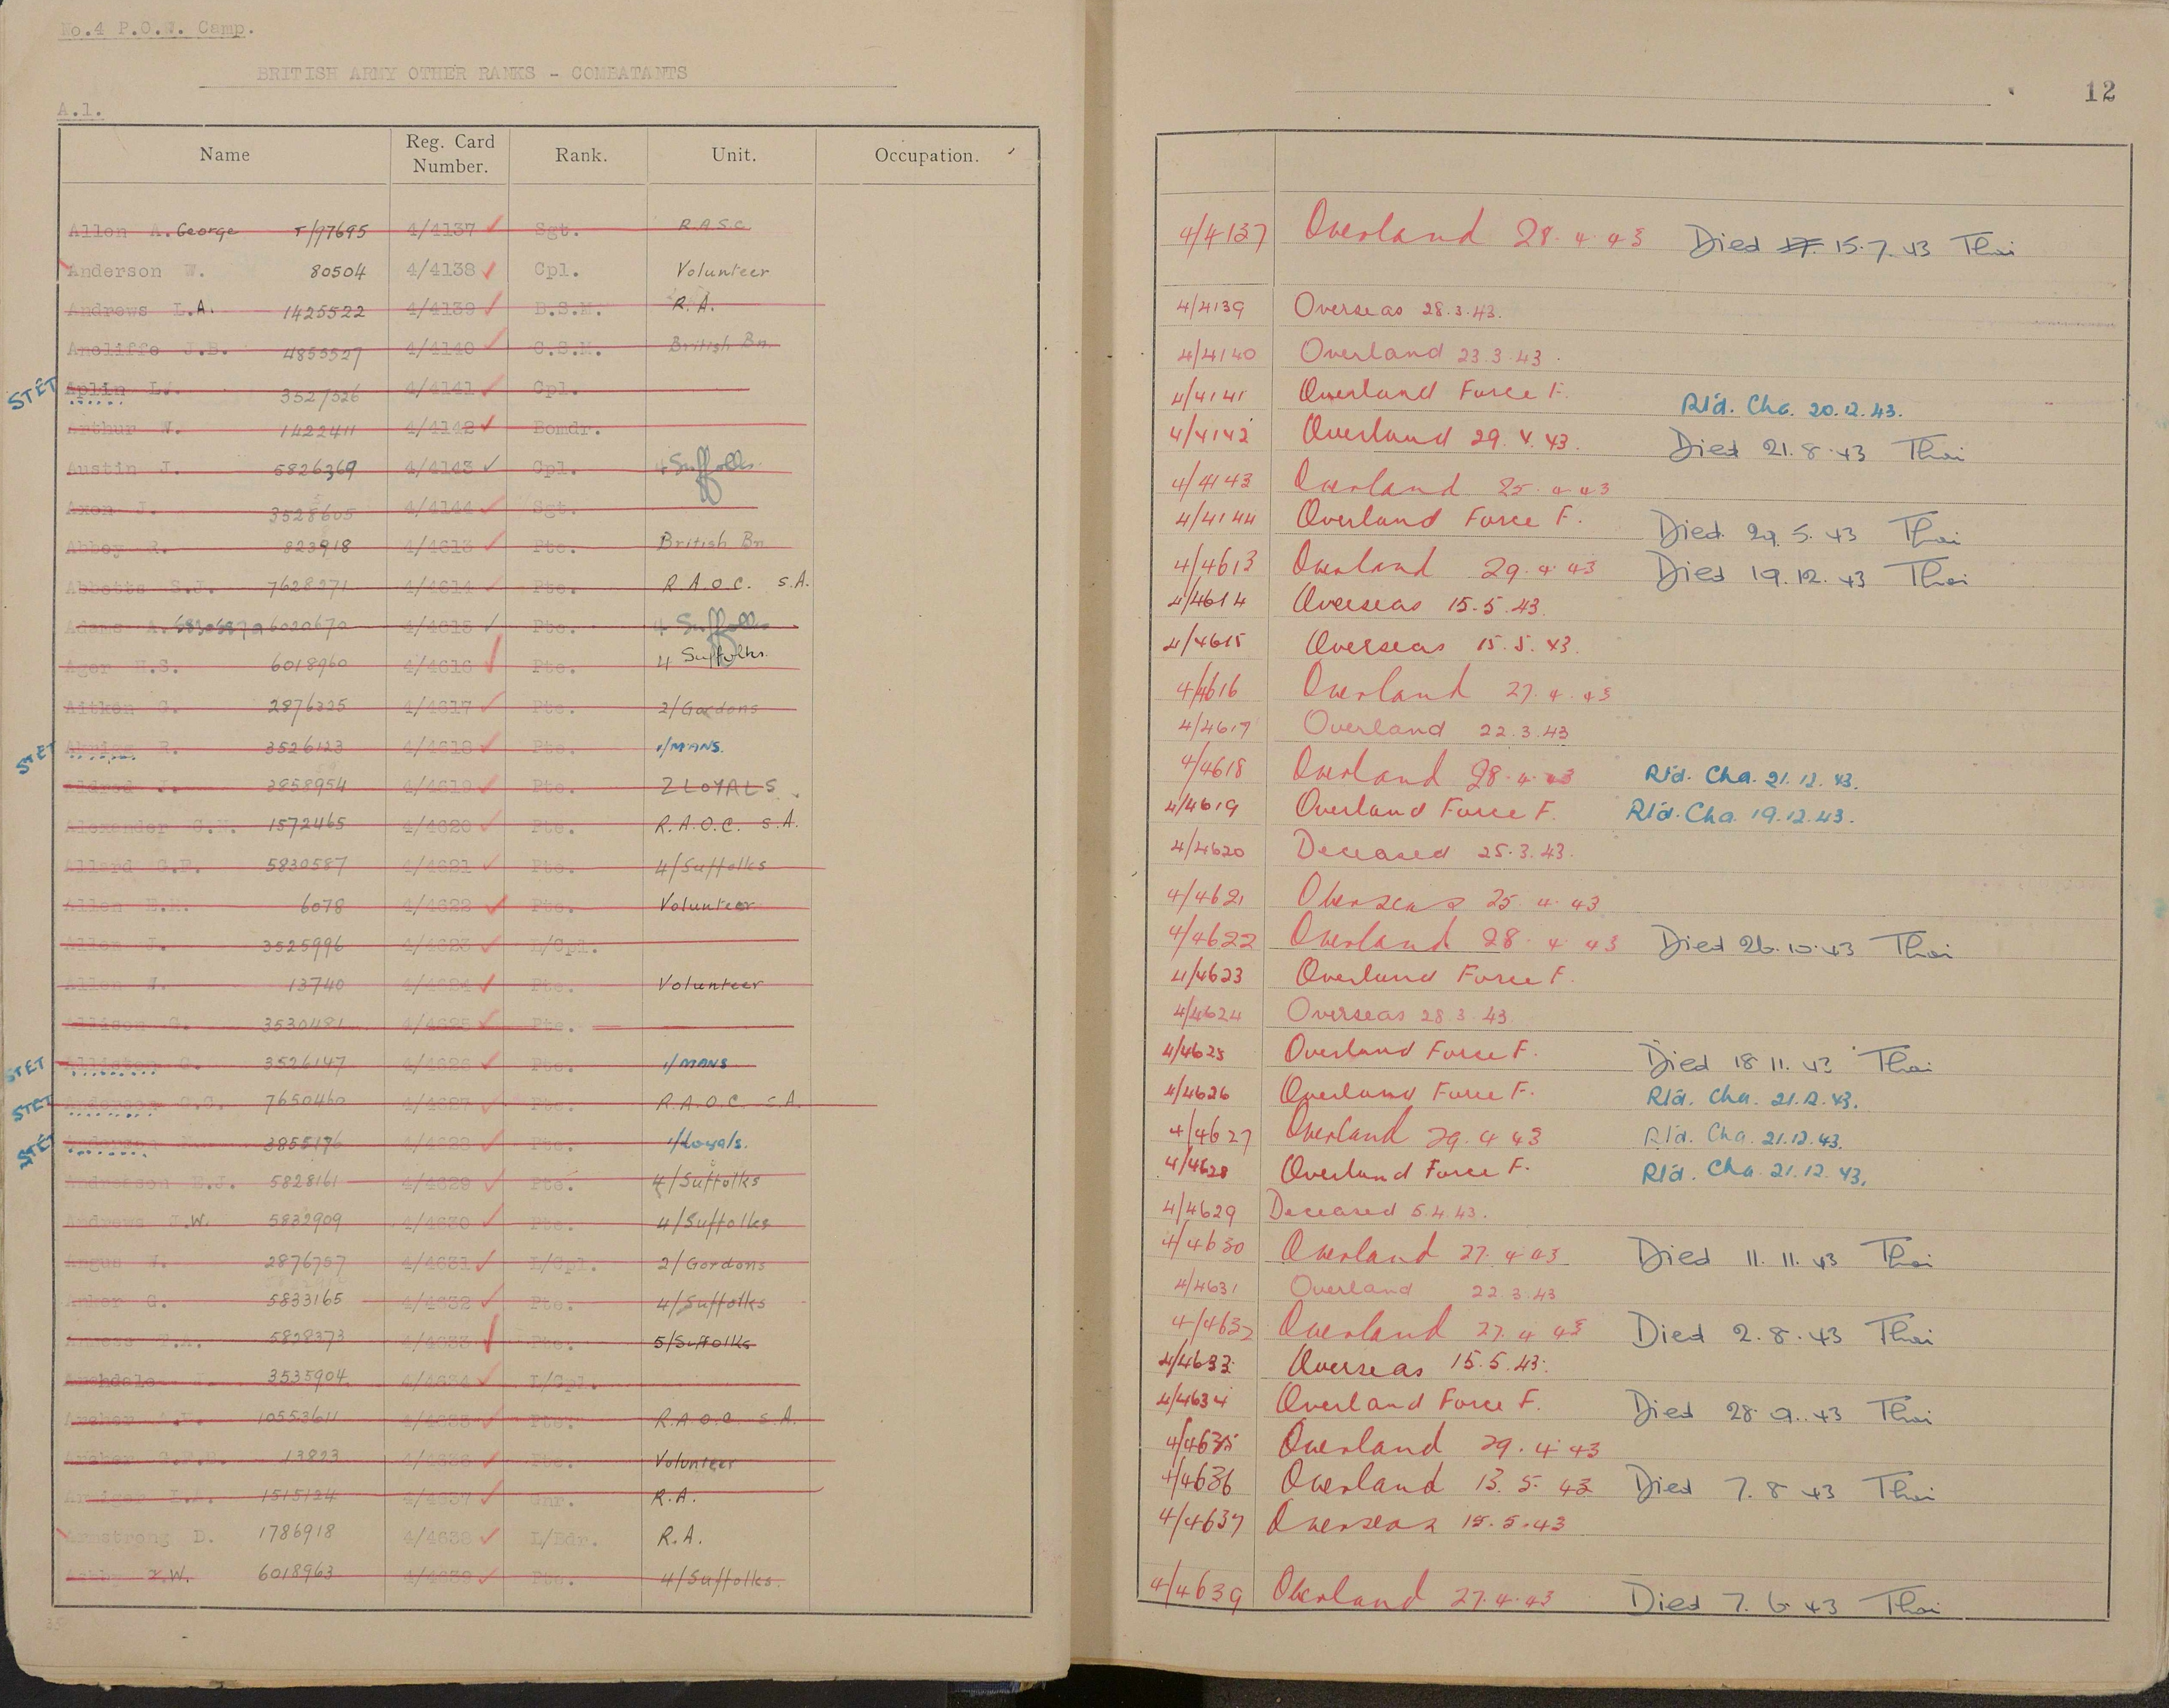 No.4 P.O.W. Camp.
BRITISH ARMY OTHER RANKS - COMBATANTS
A.1.
Name Reg. Card Number. Rank. Unit. Occupation.
Allen A. George T/97695 4/4137 Sgt. R.A.S.C.
Anderson W. 80504 4/4138 Cpl. Volunteer
Andrews L.A. 1425522 4/4139 B.S.M. R.A.
Ancliffe J.B. 4853527 4/4140 C.S.M. British Bn.
STET Aplin L. 3527526 4/4141 Cpl.
Arthur W. 1422411 4/4142 Bomdr.
Austin J. 5826369 4/4143 Cpl. 4 Suffolks
Axon J. 3528605 4/4144 Sgt.
Abbey R. 823918 4/4613 Pte. British Bn
Abbotts S.J. 7628271 4/4614 Pte. R.A.O.C. S.A.
Adams A. 6020670 4/4615 Pte. 4 Suffolks
Ager H.S. 6018960 4/4616 Pte. 4 Suffolks
Aitken G. 2876325 4/4617 Pte. 2/Gordons
STET Akrigg R. 3526123 4/4618 Pte. 1/MANS.
Aldred J. 3858954 4/4619 Pte. 2 LOYALS
Alexander 1572465 4/4620 Pte. R.A.O.C. S.A.
Allard G.F. 5830587 4/4621 Pte. 4/Suffolks
Allen 6078 4/4622 Pte. Volunteer
Allen J. 3525996 4/4623 L/Cpl.
Allen W. 13740 4/4624 Pte. Volunteer
Allison G. 3530481 4/4625 Pte.
STET 3526147 4/4626 Pte. 1/MANS
STET Anderson 7650460 4/4627 Pte. R.A.O.C. S.A.
STET 3855176 4/4628 Pte. 1/Loyals.
Anderson E.J. 5828161 4/4629 Pte. 4/Suffolks
Andrews J.W. 5832909 4/4630 Pte. 4/Suffolks
Angus W. 2876757 4/4631 L/Cpl. 2/Gordons
Anker G. 5833165 4/4632 Pte. 4/Suffolks
5828373 4/4633 Pte. 5/Suffolks
Archdale 3535904 4/4634 L/Cpl.
Archer 10553611 4/4635 Pte. R.A.O.C. S.A.
Archer 13823 4/4636 Pte. Volunteer
Armiger 1515124 4/4637 Gnr. R.A.
Armstrong D. 1786918 4/4638 L/Bdr. R.A.
Ashby W. 6018963 4/4639 Pte. 4/Suffolks.
12
4/4137 Overland 28.4.43 Died 15.7.43 Thai
4/4139 Overseas 28.3.43.
4/4140 Overland 23.3.43.
4/4141 Overland Force F. Rtd. Cha. 20.12.43.
4/4142 Overland 29.4.43. Died 21.8.43 Thai
4/4143 Overland 25.4.43
4/4144 Overland Force F. Died. 29.5.43 Thai
4/4613 Overland 29.4.43 Died 19.12.43 Thai
4/4614 Overseas 15.5.43.
4/4615 Overseas 15.5.43.
4/4616 Overland 27.4.43
4/4617 Overland 22.3.43
4/4618 Overland 28.4.43 Rtd. Cha. 21.12.43.
4/4619 Overland Force F. Rtd. Cha. 19.12.43.
4/4620 Deceased 25.3.43.
4/4621 Overseas 25.4.43
4/4622 Overland 28.4.43 Died 26.10.43 Thai
4/4623 Overland Force F.
4/4624 Overseas 28.3.43.
4/4625 Overland Force F. Died 18.11.43 Thai
4/4626 Overland Force F. Rtd. Cha. 21.12.43.
4/4627 Overland 29.4.43 Rtd. Cha. 21.12.43.
4/4628 Overland Force F. Rtd. Cha. 21.12.43.
4/4629 Deceased 5.4.43.
4/4630 Overland 27.4.43 Died 11.11.43 Thai
4/4631 Overland 22.3.43
4/4632 Overland 27.4.43 Died 2.8.43 Thai
4/4633 Overseas 15.5.43.
4/4634 Overland Force F. Died 28.9.43 Thai
4/4635 Overland 29.4.43
4/4636 Overland 13.5.43 Died 7.8.43 Thai
4/4637 Overseas 15.5.43
4/4639 Overland 27.4.43 Died 7.6.43 Thai